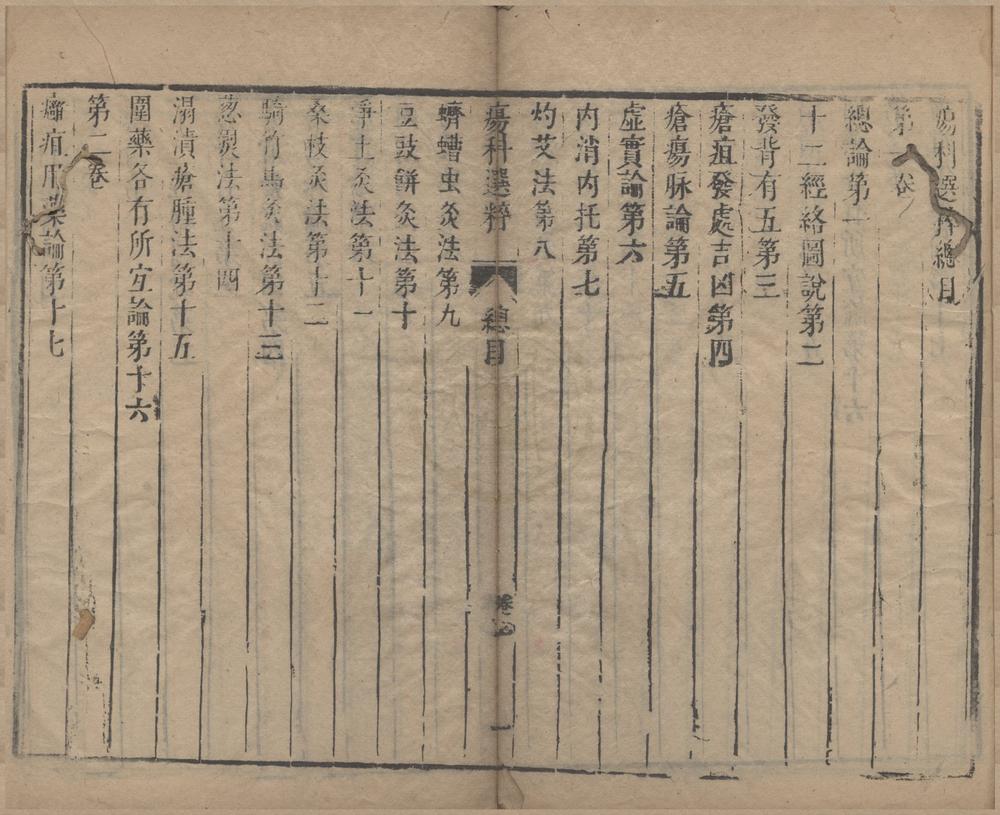 瘍科選粹總目
第 卷
總論第一
十二經絡圖說第二
發背有五第三
瘡疽發處吉凶第四
瘡瘍脉論第五
虛實論第六
内消内托第七
灼艾法第八
瘍科選粹 總目 卷之 一
蠐螬虫灸法第九
豆豉餅灸法第十
淨土灸法第十一
桑枝灸法第十二
騎竹馬灸法第十三
葱熨法第十四
溻漬瘡腫法第十五
圍藥各有所宐論第十六
第二卷
癰疽用藥論第十七